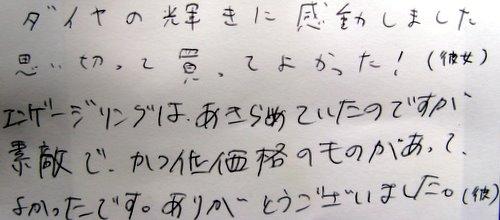 ダイヤの輝きに感動しました
思い切って買ってよかった！（彼女）
エンゲージリングは、あきらめていたのですが
素敵で、かつ低価格のものがあって、
よかったです。ありがとうございました。（彼）